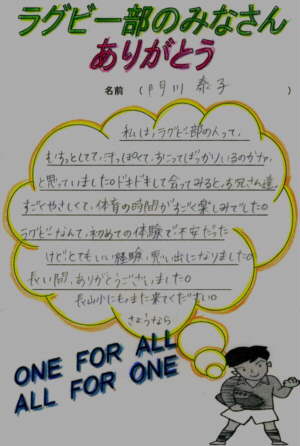 ラグビー部のみなさん
ありがとう
名前 ( 川 泰子 )
私は、ラグビー部の人って、
むすっとしてて、汗っぽくて、おこってばっかりいるのかな、
と思っていました。ドキドキして会ってみると、お兄さん達、
すごくやさしくて、体育の時間がすごく楽しみでした。
ラグビーなんて、初めての体験で不安だった
けどとてもいい経験、思い出になりました。
長い間、ありがとうございました。
長山小にもまた来てください。
さようなら
ONE FOR ALL
ALL FOR ONE